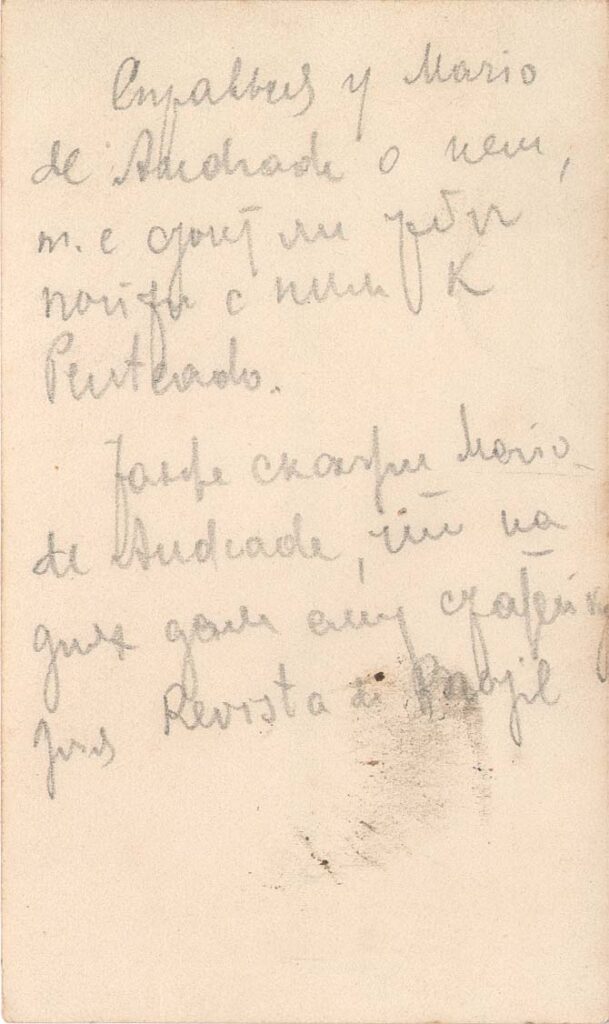 у Mario
de Andrade о нем,
т. е стоит ли
пойти с ним к
Penteado.
Также скажи Mario
de Andrade, что на
днях дам ему статейку
для Revista do Brazil